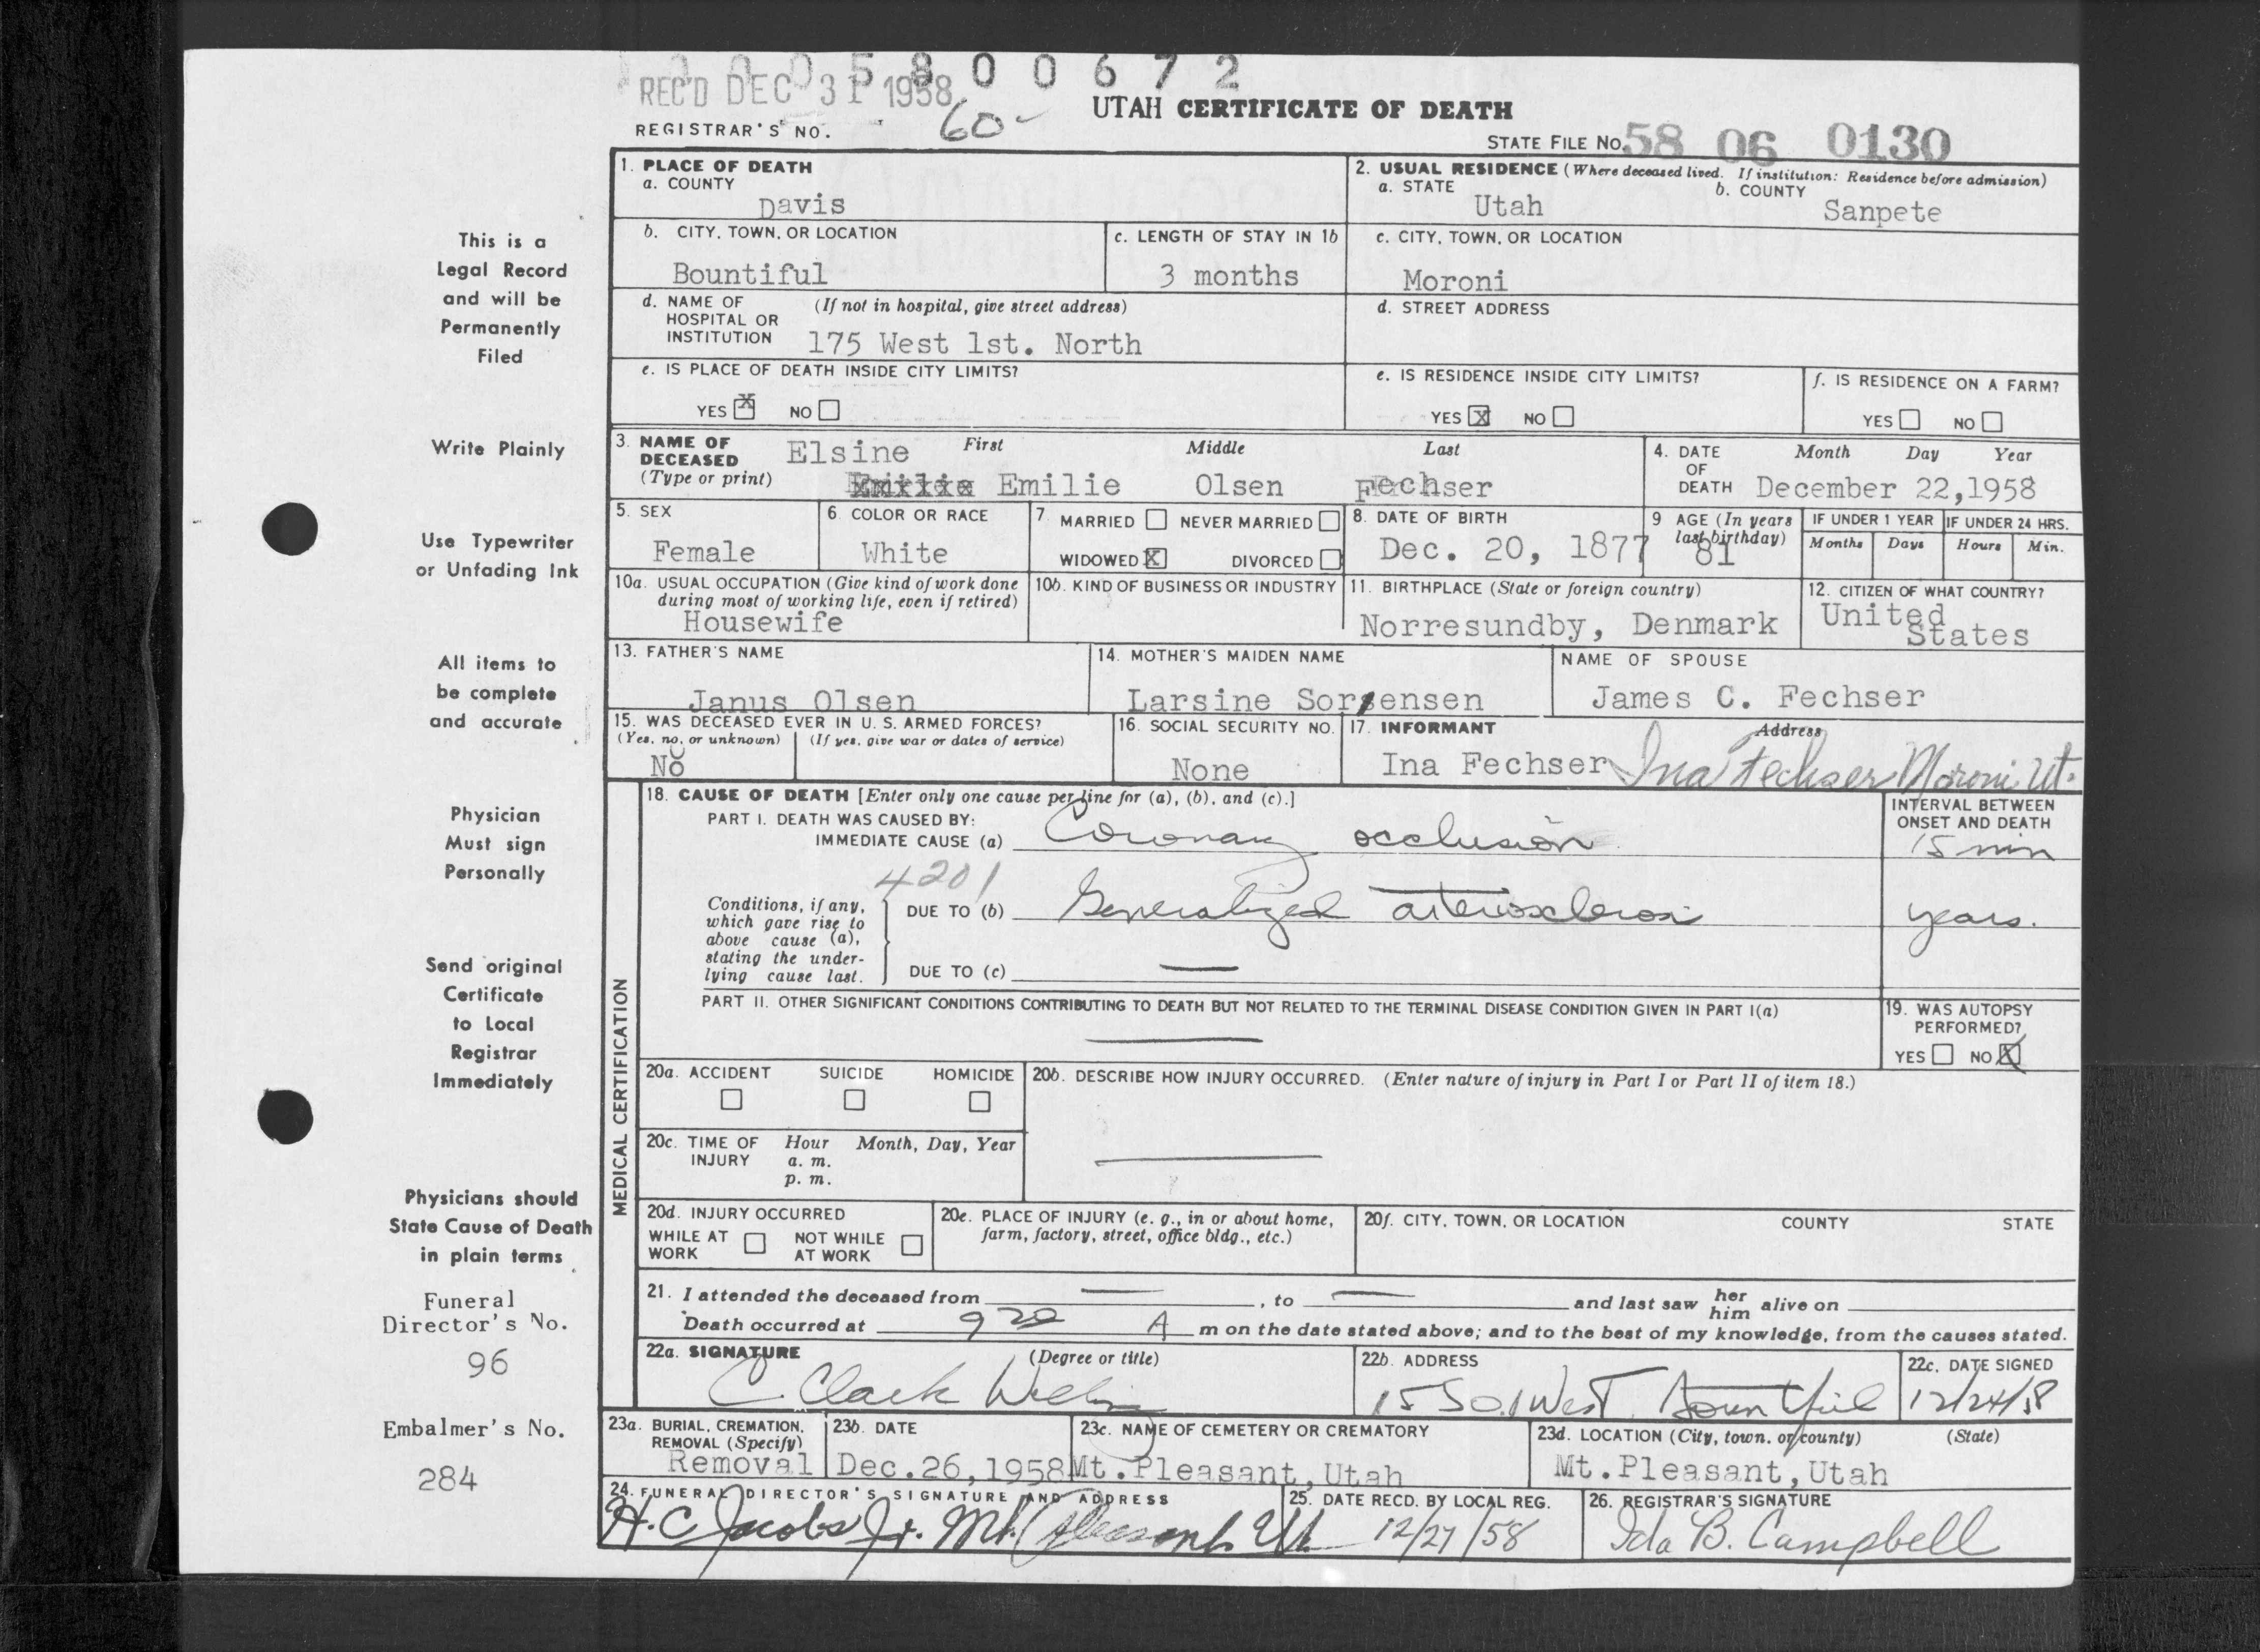 0 0 5 8 0 0 6 7 2
REC'D DEC 31 1958
UTAH CERTIFICATE OF DEATH
REGISTRAR'S NO. 60-
STATE FILE NO. 58 06 0130
1. PLACE OF DEATH
a. COUNTY
Davis
2. USUAL RESIDENCE (Where deceased lived. If institution: Residence before admission)
a. STATE b. COUNTY
Utah Sanpete
b. CITY, TOWN, OR LOCATION
Bountiful
c. LENGTH OF STAY IN 1b
3 months
c. CITY, TOWN, OR LOCATION
Moroni
d. NAME OF (If not in hospital, give street address)
HOSPITAL OR
INSTITUTION 175 West 1st. North
d. STREET ADDRESS
e. IS PLACE OF DEATH INSIDE CITY LIMITS?
YES X NO
e. IS RESIDENCE INSIDE CITY LIMITS?
YES X NO
f. IS RESIDENCE ON A FARM?
YES NO
3. NAME OF First Middle Last
DECEASED Elsine
(Type or print) Emilie Olsen Fechser
4. DATE Month Day Year
OF
DEATH December 22,1958
5. SEX
Female
6. COLOR OR RACE
White
7. MARRIED NEVER MARRIED
WIDOWED X DIVORCED
8. DATE OF BIRTH
Dec. 20, 1877
9 AGE (In years
last birthday)
81
IF UNDER 1 YEAR
Months Days
IF UNDER 24 HRS.
Hours Min.
10a. USUAL OCCUPATION (Give kind of work done
during most of working life, even if retired)
Housewife
10b. KIND OF BUSINESS OR INDUSTRY
11. BIRTHPLACE (State or foreign country)
Norresundby, Denmark
12. CITIZEN OF WHAT COUNTRY?
United
States
13. FATHER'S NAME
Janus Olsen
14. MOTHER'S MAIDEN NAME
Larsine Sorensen
NAME OF SPOUSE
James C. Fechser
15. WAS DECEASED EVER IN U. S. ARMED FORCES?
(Yes, no, or unknown) (If yes, give war or dates of service)
No
16. SOCIAL SECURITY NO.
None
17. INFORMANT Address
Ina Fechser Ina Fechser Moroni, Ut.
MEDICAL CERTIFICATION
18. CAUSE OF DEATH [Enter only one cause per line for (a), (b), and (c).]
INTERVAL BETWEEN
ONSET AND DEATH
PART I. DEATH WAS CAUSED BY:
IMMEDIATE CAUSE (a) Coronary occlusion 15 min
4201
Conditions, if any,
which gave rise to
above cause (a),
stating the under-
lying cause last.
DUE TO (b) Generalized arteriosclerosis years.
DUE TO (c) —
PART II. OTHER SIGNIFICANT CONDITIONS CONTRIBUTING TO DEATH BUT NOT RELATED TO THE TERMINAL DISEASE CONDITION GIVEN IN PART I(a)
—
19. WAS AUTOPSY
PERFORMED?
YES NO X
20a. ACCIDENT SUICIDE HOMICIDE
20b. DESCRIBE HOW INJURY OCCURRED. (Enter nature of injury in Part I or Part II of item 18.)
—
20c. TIME OF Hour Month, Day, Year
INJURY a. m.
p. m.
20d. INJURY OCCURRED
WHILE AT NOT WHILE
WORK AT WORK
20e. PLACE OF INJURY (e. g., in or about home,
farm, factory, street, office bldg., etc.)
20f. CITY, TOWN, OR LOCATION COUNTY STATE
21. I attended the deceased from —, to — and last saw her him alive on
Death occurred at 9 20 A m on the date stated above; and to the best of my knowledge, from the causes stated.
22a. SIGNATURE (Degree or title)
C. Clark
22b. ADDRESS
15 So. 1 West Bountiful
22c. DATE SIGNED
12/24/58
23a. BURIAL, CREMATION,
REMOVAL (Specify)
Removal
23b. DATE
Dec.26,1958
23c. NAME OF CEMETERY OR CREMATORY
Mt.Pleasant,Utah
23d. LOCATION (City, town. or county) (State)
Mt.Pleasant,Utah
24. FUNERAL DIRECTOR'S SIGNATURE AND ADDRESS
H.C Jacobs Jr. Mt. Pleasant Ut.
25. DATE RECD. BY LOCAL REG.
12/27/58
26. REGISTRAR'S SIGNATURE
Ida B. Campbell
This is a
Legal Record
and will be
Permanently
Filed
Write Plainly
Use Typewriter
or Unfading Ink
All items to
be complete
and accurate
Physician
Must sign
Personally
Send original
Certificate
to Local
Registrar
Immediately
Physicians should
State Cause of Death
in plain terms
Funeral
Director's No.
96
Embalmer's No.
284